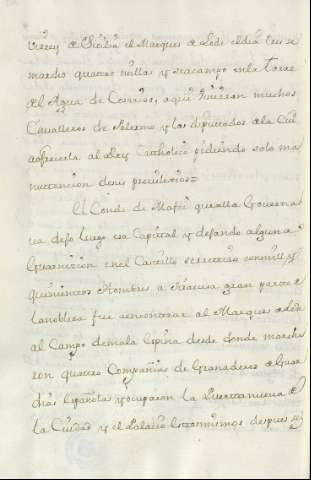 Virrey de Sicilia el Marques de Lede el dia tres se
marcho quatro millas y se acampo en la torre
del Agua de Corsarios, aqui vinieron muchos
Cavalleros de Palermo y los diputados de la Ciu
a ofrecerla al Rey Catholico pidiendo solo ma
nuttencion de sus previlexios=
El Conde de Mafei que alla Governa
va dejo luego esa Capital y dejando alguna
Guarnicion en el Castillo se retiro con mill y
quinientos Hombres a Siracusa gran parte de
la nobleza fue a encontrar al Marques de Lede
al Campo de mala espina desde donde marcha
ron quatro Compañias de Granaderos de Guar
dias Españolas y ocuparon la Puerta nueva de
la Ciudad y el Palacio los mismos despues